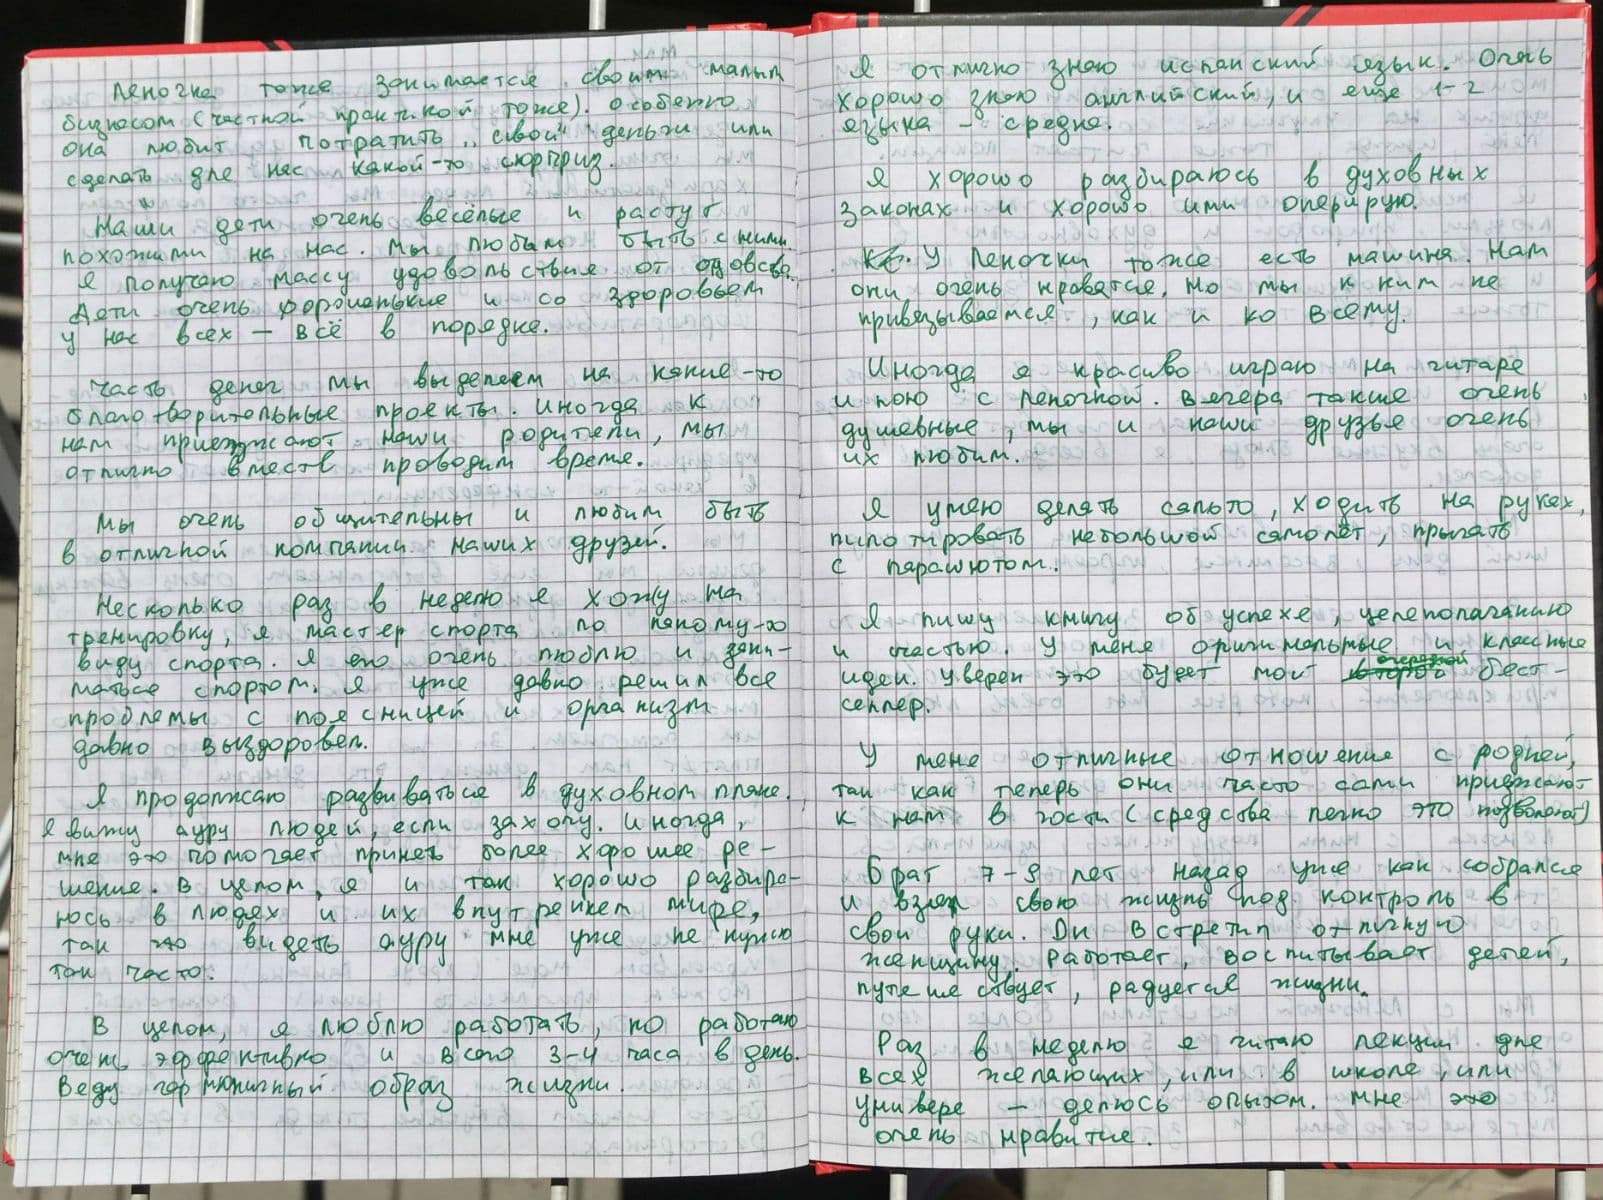 Леночка тоже занимается своим малым
бизнесом (частной практикой тоже). Особенно
она любит потратить „свои" деньги или
сделать для нас какой-то сюрприз.
Наши дети очень весёлые и растут
похожими на нас. Мы любим быть с ними.
Я получаю массу удовольствия от отцовства.
Дети очень хорошенькие и со здоровьем
у нас всех – всё в порядке.
Часть денег мы выделяем на какие-то
благотворительные проекты. Иногда к
нам приезжают наши родители, мы
отлично вместе проводим время.
Мы очень общительны и любим быть
в отличной компании наших друзей.
Несколько раз в неделю я хожу на
тренировку, я мастер спорта по какому-то
виду спорта. Я его очень люблю и зани-
маться спортом. Я уже давно решил все
проблемы с поясницей и организм
давно выздоровел.
Я продолжаю развиваться в духовном плане.
Я вижу ауру людей, если захочу. Иногда,
мне это помогает принять более хорошее ре-
шение. В целом, я и так хорошо разбира-
юсь в людях и их внутреннем мире,
так что видеть ауру мне уже не нужно
так часто.
В целом, я люблю работать, но работаю
очень эффективно и всего 3-4 часа в день.
Веду гармоничный образ жизни.
Я отлично знаю испанский язык. Очень
хорошо знаю английский, и ещё 1-2
языка – средне.
Я хорошо разбираюсь в духовных
законах и хорошо ими оперирую.
У Леночки тоже есть машина. Нам
они очень нравятся, но мы к ним не
привязываемся, как и ко всему.
Иногда я красиво играю на гитаре
и пою с Леночкой. Вечера такие очень
душевные, мы и наши друзья очень
их любим.
Я умею делать сальто, ходить на руках,
пилотировать небольшой самолёт, прыгать
с парашютом.
Я пишу книгу об успехе, целеполаганию
и счастью. У меня оригинальные и классные
идеи. Уверен это будет мой второй очередной бест-
селлер.
У меня отличные отношения с роднёй,
так как теперь они часто сами приезжают
к нам в гости (средства легко это позволяют)
Брат 7-9 лет назад уже как собрался
и взял свою жизнь под контроль в
свои руки. Он встретил отличную
женщину. Работает, воспитывает детей,
путешествует, радуется жизни.
Раз в неделю я читаю лекции для
всех желающих, или в школе, или
универе – делюсь опытом. Мне это
очень нравится.